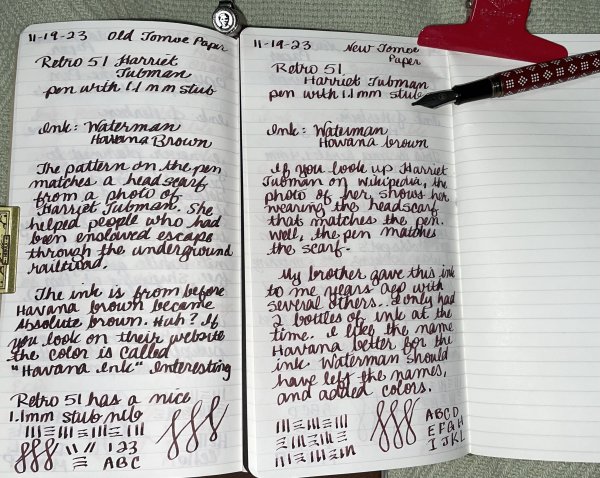 11-19-23 Old Tomoe Paper
Retro 51 Harriet
Tubman
pen with 1.1 mm stub
Ink: Waterman
Havana Brown
The pattern on the pen
matches a head scarf
from a photo of
Harriet Tubman. She
helped people who had
been enslaved escape
through the underground
railroad.
The ink is from before
Havana brown became
Absolute brown. Huh? If
you look on their website
the color is called
"Havana Ink" Interesting
Retro 51 has a nice
1.1mm stub nib
123
ABC
11-19-23 New Tomoe
Paper
Retro 51
Harriet Tubman
pen with 1.1 mm stub
Ink: Waterman
Havana brown
If you look up Harriet
Tubman on Wikipedia, the
photo of her shows her
wearing the headscarf
that matches the pen.
Well, the pen matches
the scarf.
My brother gave this ink
to me years ago with
several others. I only had
2 bottles of ink at the
time. I like the name
Havana better for the
ink. Waterman should
have left the names,
and added colors.
ABCD
EFGH
IJKL